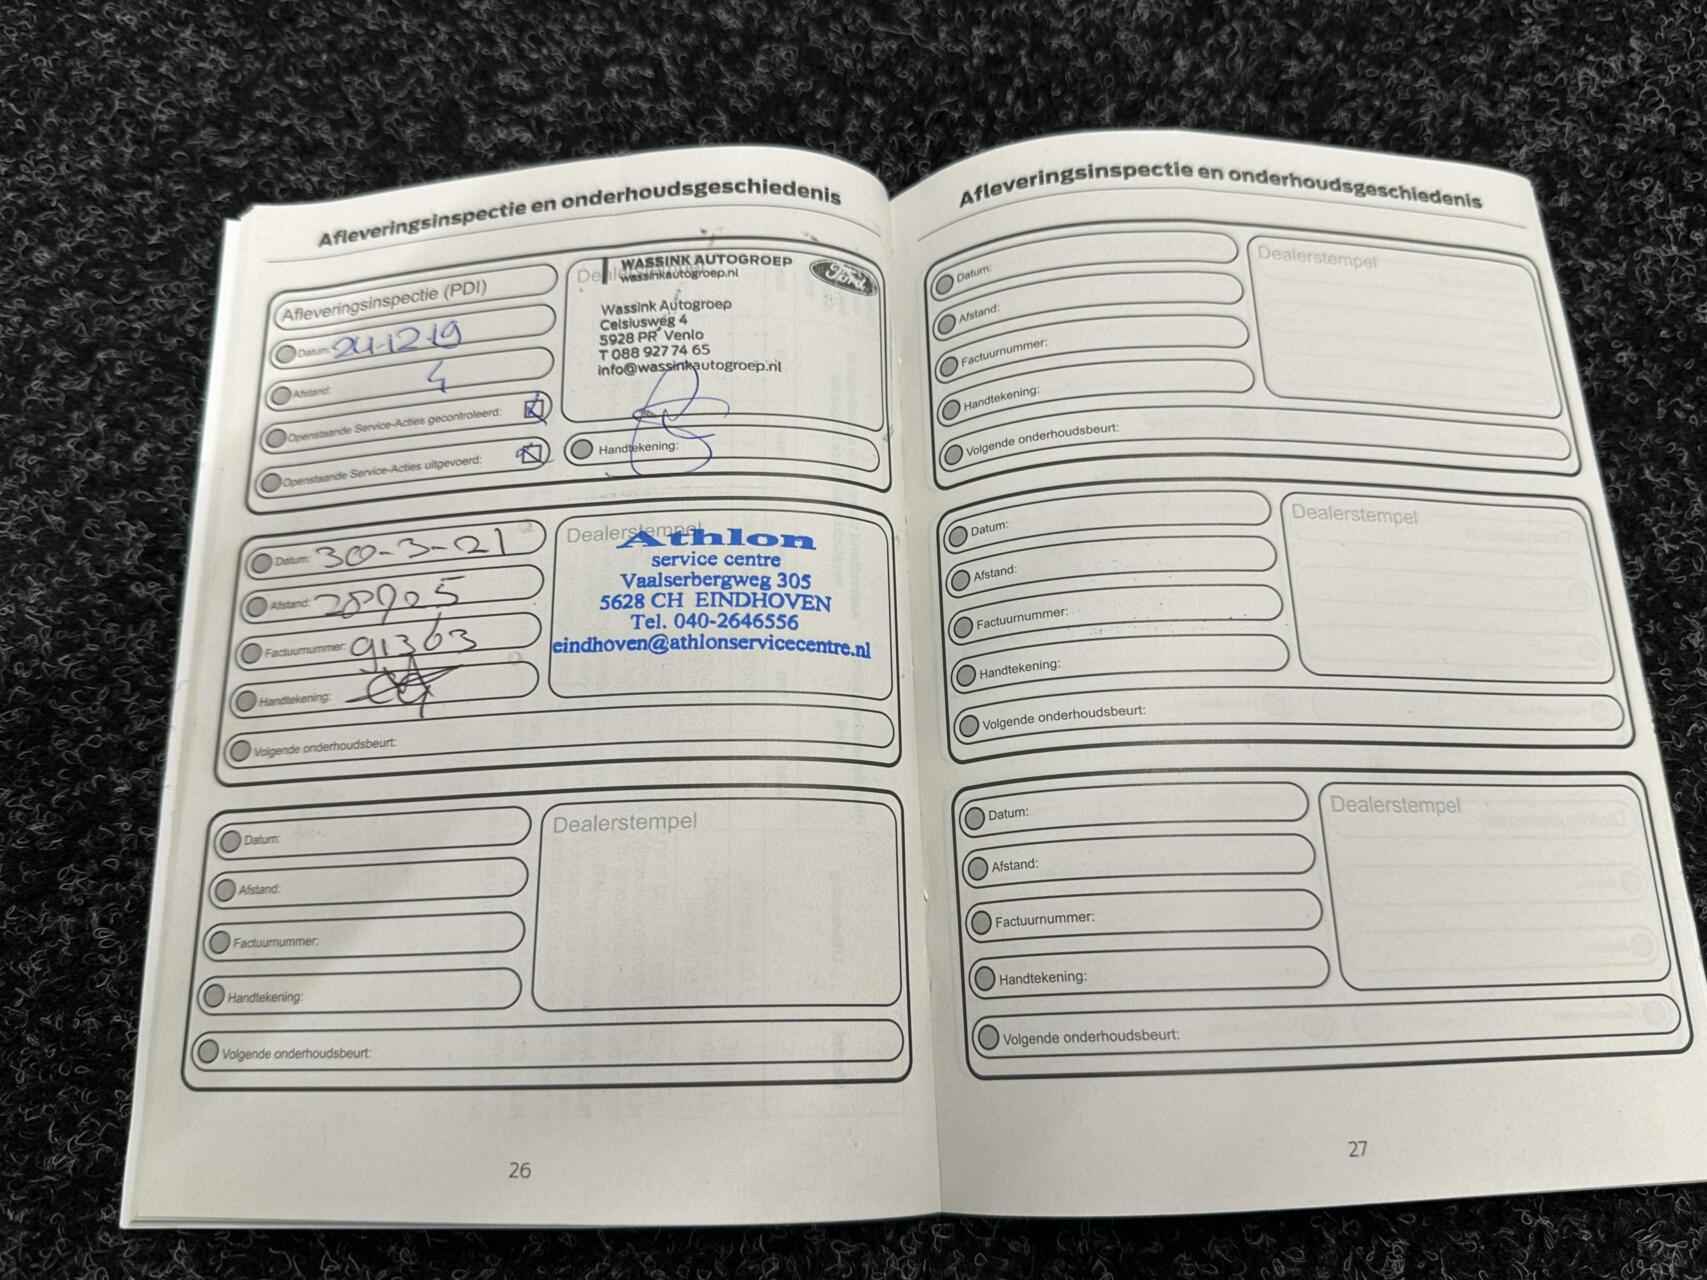 Afleveringsinspectie en onderhoudsgeschiedenis
Afleveringsinspectie (PDI)
Datum: 24-12-19
Afstand: 4
Openstaande Service-Acties gecontroleerd:
Openstaande Service-Acties uitgevoerd:
WASSINK AUTOGROEP
wassinkautogroep.nl
Ford
Wassink Autogroep
Celsiusweg 4
5928 PR Venlo
T 088 927 74 65
info@wassinkautogroep.nl
Handtekening:
Datum: 30-3-21
Afstand:
Factuurnummer: 91363
Handtekening:
Volgende onderhoudsbeurt:
Dealerstempel
Athlon
service centre
Vaalserbergweg 305
5628 CH EINDHOVEN
Tel. 040-2646556
eindhoven@athlonservicecentre.nl
Datum:
Afstand:
Factuurnummer:
Handtekening:
Volgende onderhoudsbeurt:
Dealerstempel
26
Afleveringsinspectie en onderhoudsgeschiedenis
Datum:
Afstand:
Factuurnummer:
Handtekening:
Volgende onderhoudsbeurt:
Dealerstempel
Datum:
Afstand:
Factuurnummer:
Handtekening:
Volgende onderhoudsbeurt:
Dealerstempel
Datum:
Afstand:
Factuurnummer:
Handtekening:
Volgende onderhoudsbeurt:
Dealerstempel
27